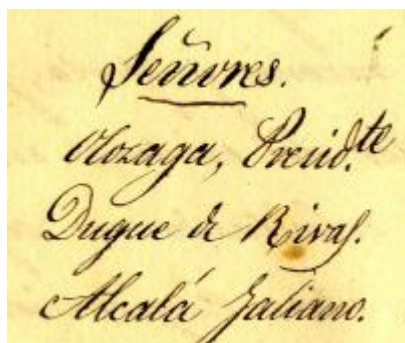 Señores.
Olozaga, Presid.te
Duque de Rivas.
Alcalá Galiano.